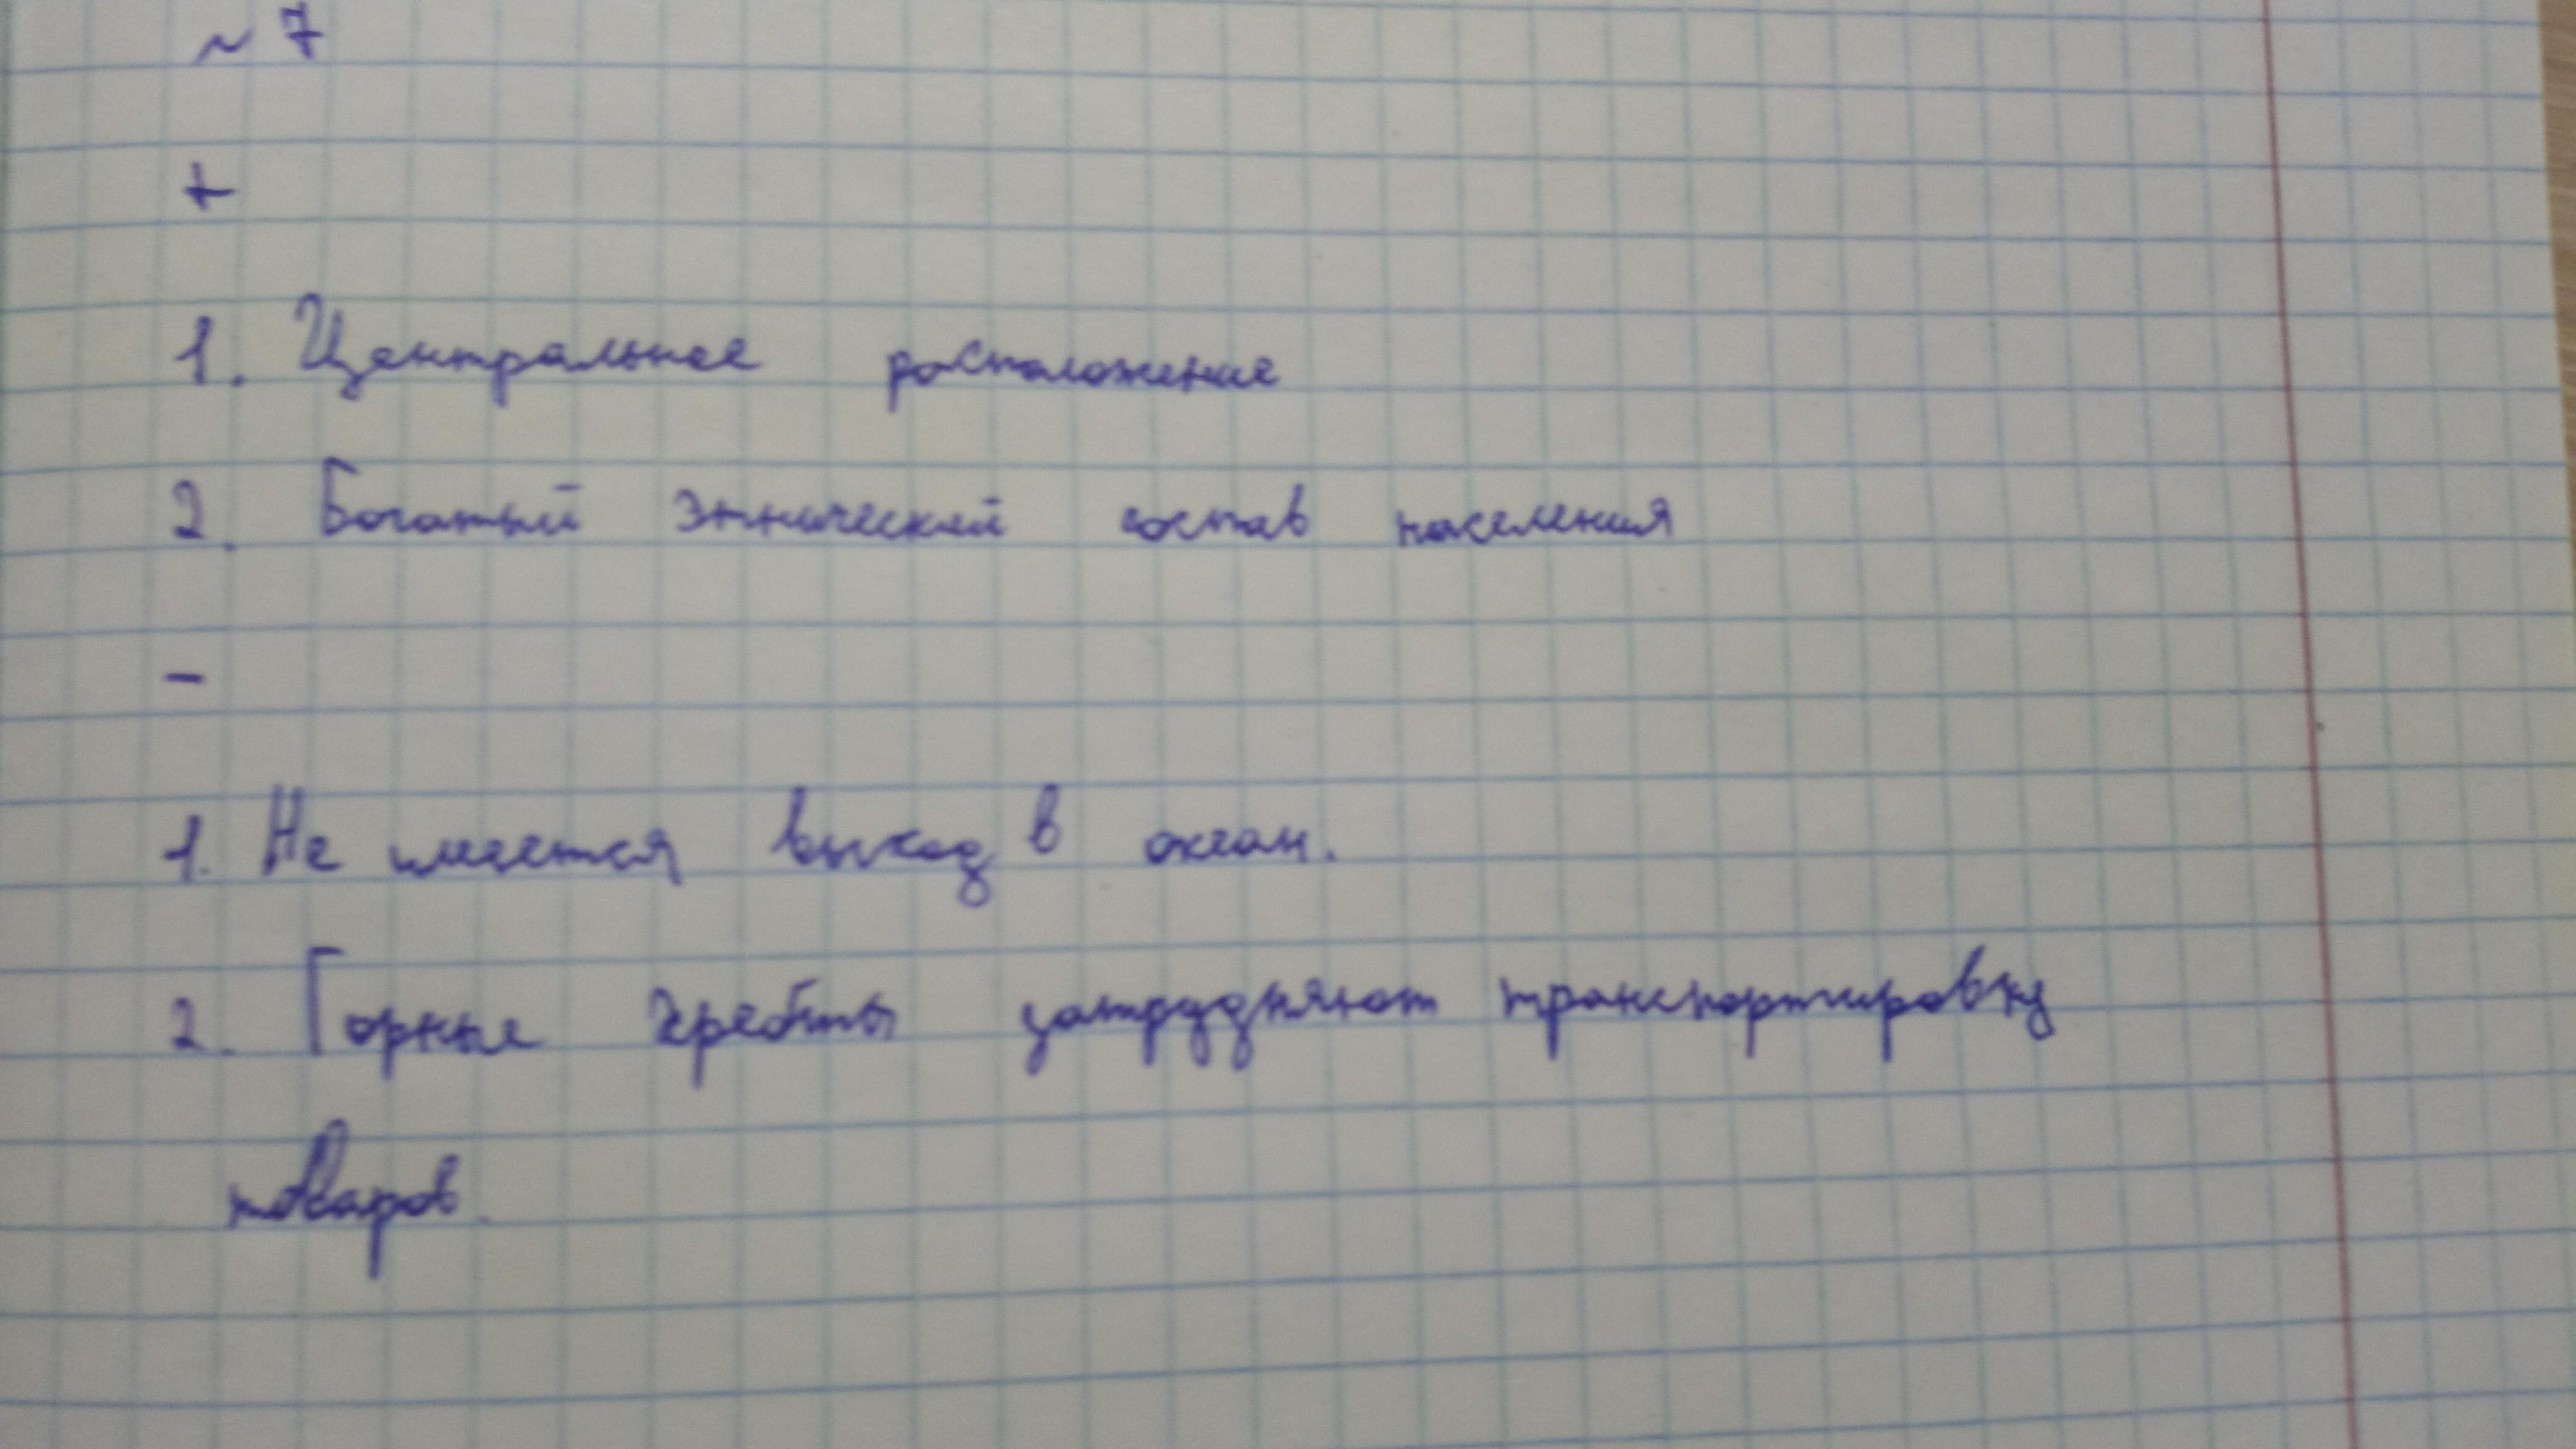 ~ 7
+
1. Центральное расположение
2. Богатый этнический состав населения
-
1. Не имеется выход в океан.
2. Горные хребты затрудняют транспортировку
товаров.